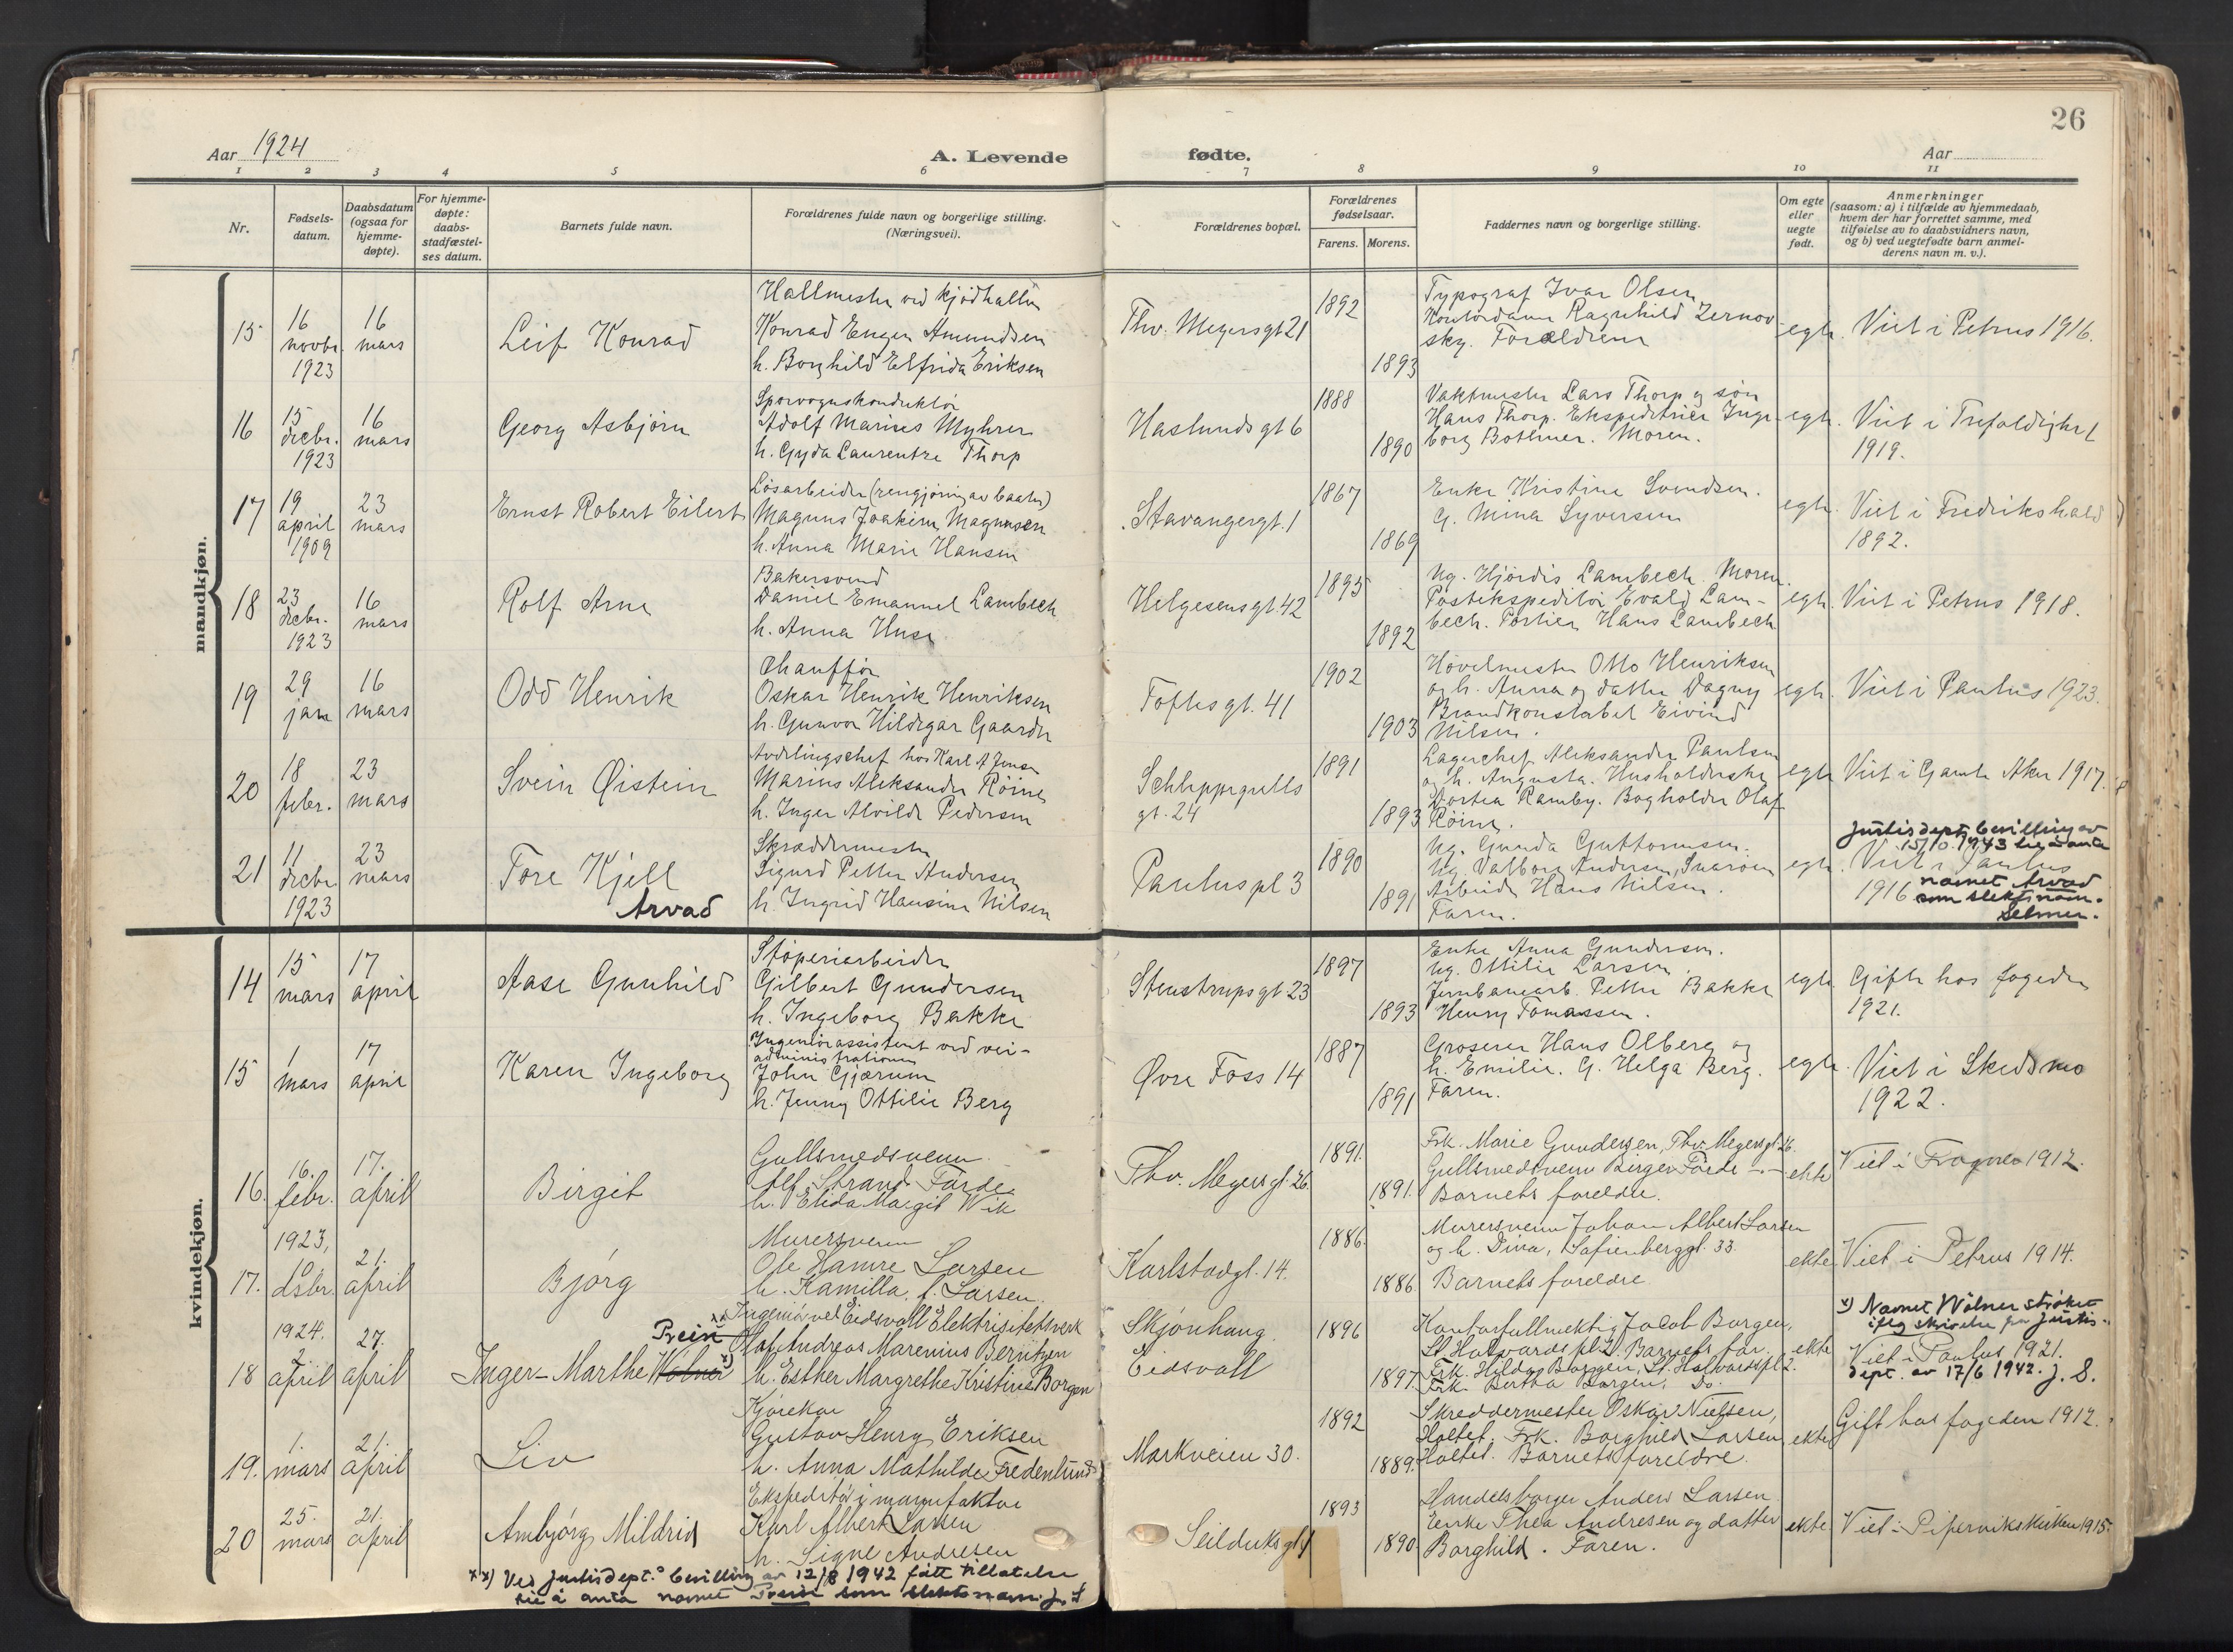 26
Aar 1924
A. Levende
fødte.
Aar
1 2 3 4 5 6 7 8 9 10 11
Nr.
Fødsels-
datum.
Daabsdatum
(ogsaa for
hjemme-
døpte).
For hjemme-
døpte:
daabs-
stadfæstel-
ses datum.
Barnets fulde navn.
Forældrenes fulde navn og borgerlige stilling.
(Næringsvei).
Forældrenes bopæl.
Forældrenes
fødselsaar.
Farens. Morens.
Faddernes navn og borgerlige stilling.
Om egte
eller
uegte
født.
Anmerkninger
(saasom: a) i tilfælde av hjemmedaab,
hvem der har forrettet samme, med
tilføielse av to daabsvidners navn,
og b) ved uegtefødte barn anmel-
derens navn m. v.).
mandkjøn.
15
16
novbr.
1923
16
mars
Leif Konrad
Hallmester ved kjødhallen
Konrad Enger Amundsen
h. Borghild Elfrida Eriksen
Thv. Meyersgt 21
1892
1893
Typograf Ivar Olsen
Kontordame Ragnhild Zernov
sky. Forældrene
egte.
Viet i Petrus 1916.
16
15
decbr.
1923
16
mars
Georg Asbjørn
Sporvognskonduktør
Adolf Marius Myhrer
h. Gyda Laurentze Thorp
Haslunds gt 6
1888
1890
Vaktmester Lars Thorp og søn
Hans Thorp. Ekspeditrice Inge-
borg Bothner. Moren.
egte.
Viet i Trefoldighet
1919.
17
19
april
1909
23
mars
Ernst Robert Eilert
Løsarbeider (rengjøring av baater)
Magnus Joakim Magnusen
h. Anna Marie Hansen
Stavangergt. 1
1867
1869
Enke Kristine Svendsen.
G. Mina Syversen
egte.
Viet i Fredrikshald
1892.
18
23
decbr.
1923
16
mars
Rolf Arne
Bakersvend
Daniel Emanuel Lambech
h. Anna Huse
Helgesens gt. 42
1895
1892
Ug. Hjørdis Lambech. Moren.
Postekspeditør Evald Lam-
bech. Portier Hans Lambech
egte.
Viet i Petrus 1918.
19
29
jan
16
mars
Odd Henrik
Chauffør
Oskar Henrik Henriksen
h. Gunvor Hildegar Gaarder
Toftes gt. 41
1902
1903
Høvelmester Otto Henriksen
og h. Anna og datter Dagny
Brandkonstabel Eivind
Nilsen.
egte.
Viet i Paulus 1923.
20
18
febr.
23
mars
Svein Øistein
Avdelingschef hos Karl A Jensen
Marius Aleksander Røine
h. Inger Alvilde Pedersen
Schleppegrells
gt. 24
1891
1893
Lagerchef Aleksander Paulsen
og h. Augusta. Husholderske
Dortea Ramby. Bogholder Olaf
Røine.
egte
Viet i Gamle Aker 1917.
21
11
decbr
1923
23
mars
Tore Kjell
Arvad
Skræddermester
Sigurd Petter Andersen
h. Ingrid Hansine Nilsen
Paulus pl 3
1890
1891
Ug. Gunda Guttormsen.
Ug. Valborg Andersen, Snarøen
Arbeider Hans Nilsen.
Faren.
egte.
Justisdept. bevilling av
15/10. 1943 til å anta
Viet i Paulus
1916 navnet Arvad
som slektsnavn.
Selmer.
kvindekjøn.
14
15
mars
17
april
Aase Gunhild
Støperiarbeider
Gilbert Gundersen
h. Ingeborg Bakke
Stenstrups gt 23
1897
1893
Enke Anna Gundersen.
Ug. Ottilie Larsen.
Jernbanearb. Petter Bakke
Henry Tomassen.
egte.
Gifte hos fogeden
1921.
15
1
mars
17
april
Karen Ingeborg
Ingeniørassistent ved vei-
administrationen
John Gjærum
h. Jenny Ottilie Berg
Øvre Foss 14
1887
1891
Groserer Hans Olberg og
h. Emilie. G. Helga Berg.
Faren.
egte.
Viet i Skedsmo
1922.
16.
16.
febr.
17.
april
Birgit
Gullsmedsvenn
Alf Strand Førde
h. Elida Margit Wik
Thv. Meyersgt. 26.
1891.
1891.
Frk. Marie Gundersen, Thv. Meyersgt. 26.
Gullsmedsvenn Birger Førde —"—
Barnets foreldre.
ekte
Viet i Frogner 1912.
17.
1923,
10.
dsbr.
21.
april
Bjørg
Murersvenn
Ole Hamre Larsen
h. Kamilla f. Larsen.
Karlstadgt. 14.
1886.
1886.
Murersvenn Johan Albert Larsen
og h. Dina, Sofienberggt. 33.
Barnets foreldre
ekte
Viet i Petrus 1914.
18
1924.
2.
april
27.
april
Prein xx)
Inger-Marthe Wølner x)
Ingeniør ved Eidsvoll Elektrisitetsverk
Olaf Andreas Marenius Berntzen
h. Esther Margrethe Kristine Borgen
Skjønhaug
Eidsvoll
1896
1897.
Kontorfullmektig Jacob Borgen,
St. Halvards pl. 2. Barnets far.
Frk. Hilda Borgen, St. Halvards pl. 2.
Frk. Bertha Borgen. Do.
ekte
x) Navnet Wølner strøket
iflg skrivelse fra Justis-
Viet i Paulus 1921.
dept. av 17/6 1942. J. S.
19.
1.
mars
21.
april
Liv
Kjørekar
Gustav Henry Eriksen
h. Anna Mathilde Fredenlund
Markveien 30.
1892
1889.
Skreddermester Oskar Nielsen,
Holtet. Frk. Borghild Larsen,
Holtet. Barnets foreldre.
ekte
Gift hos fogeden 1912.
20
25.
mars
21.
april
Ambjørg Mildrid
Ekspeditør i manufaktur
Karl Albert Larsen
h. Signe Andresen
Seilduksgt
1893
1890.
Handelsborger Anders Larsen.
Enke Thea Andresen og datter
Borghild. Faren.
ekte
Viet i Piperviksskirken 1915.
xx) Ved Justisdept.s bevilling av 12/8 1942 fått tillatelse
til å anta navnet Prein som slektsnavn. J. S.